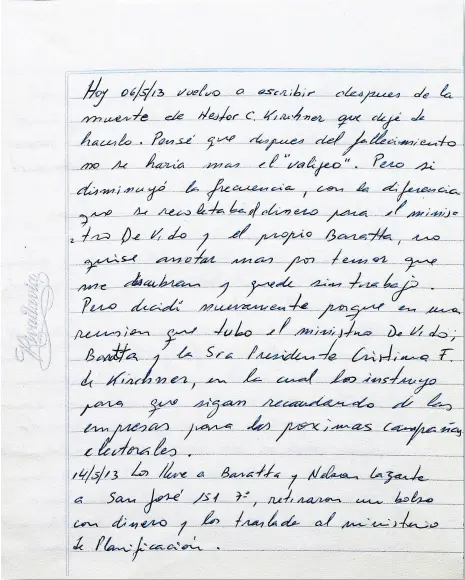 Hoy 06/5/13 vuelvo a escribir despues de la
muerte de Nestor C. Kirchner que dejé de
hacerlo. Pensé que despues del fallecimiento
no se haria mas el "valijeo". Pero si
disminuyó la frecuencia, con la diferencia
que se recoletaba el dinero para el minis
tro De Vido y el propio Baratta, no
quise anotar mas por temor que
me descubran y quede sin trabajo.
Pero decidí nuevamente porque en una
reunion que tubo el ministro De Vido,
Baratta y la Sra Presidente Cristina F.
de Kirchner, en la cual los instruyo
para que sigan recaudando de las
empresas para las proximas campañas
electorales.
14/5/13 Los lleve a Baratta y Nelson Lazarte
a San José 151 7º, retiraron un bolso
con dinero y los traslade al ministerio
de Planificación.
Rivadavia